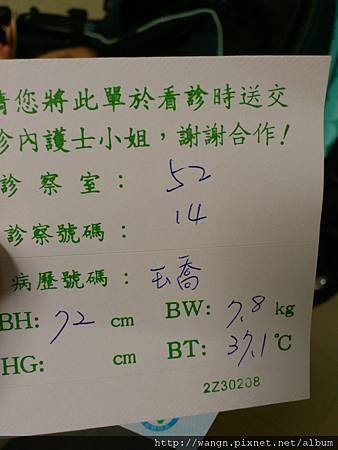 請您將此單於看診時送交
診內護士小姐，謝謝合作！
診察室： 52
診察號碼： 14
病歷號碼： 玉喬
BH: 72 cm BW: 7.8 kg
HG: cm BT: 37.1 ℃
2Z30208
http://wangn.pixnet.net/album